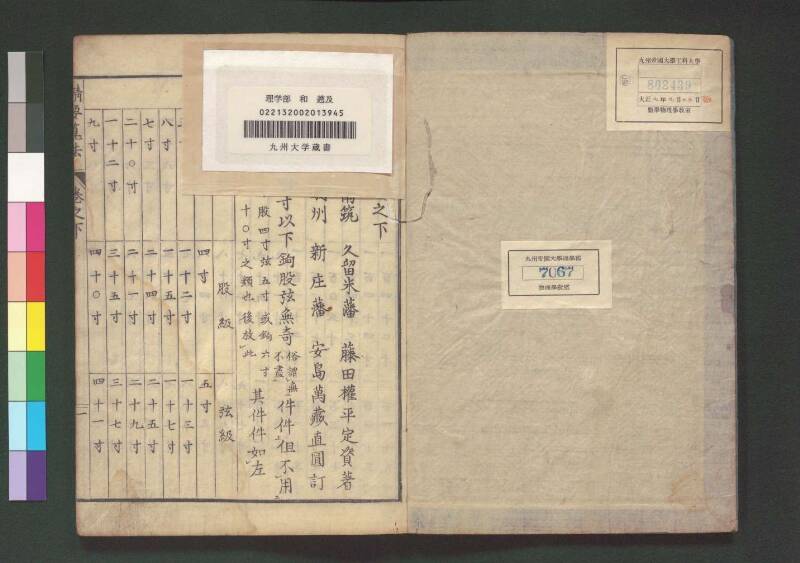 九州帝國大學工科大學
802439
九州帝國大學理學部
7067
理学部 和 遡及
022132002013945
九州大学蔵書
之下
筑 久留米藩 藤田權平定資著
州 新庄藩 安島萬藏直圓訂
寸以下鉤股弦無奇俗謂無不盡件件但不用
股四寸弦五寸或鉤六寸
十〇寸之類也後放此
其件件如左
股級 弦級
四寸 五寸
一十二寸 一十三寸
八寸 一十五寸 一十七寸
七寸 二十四寸 二十五寸
二十〇寸 二十一寸 二十九寸
一十二寸 三十五寸 三十七寸
九寸 四十〇寸 四十一寸
卷之下